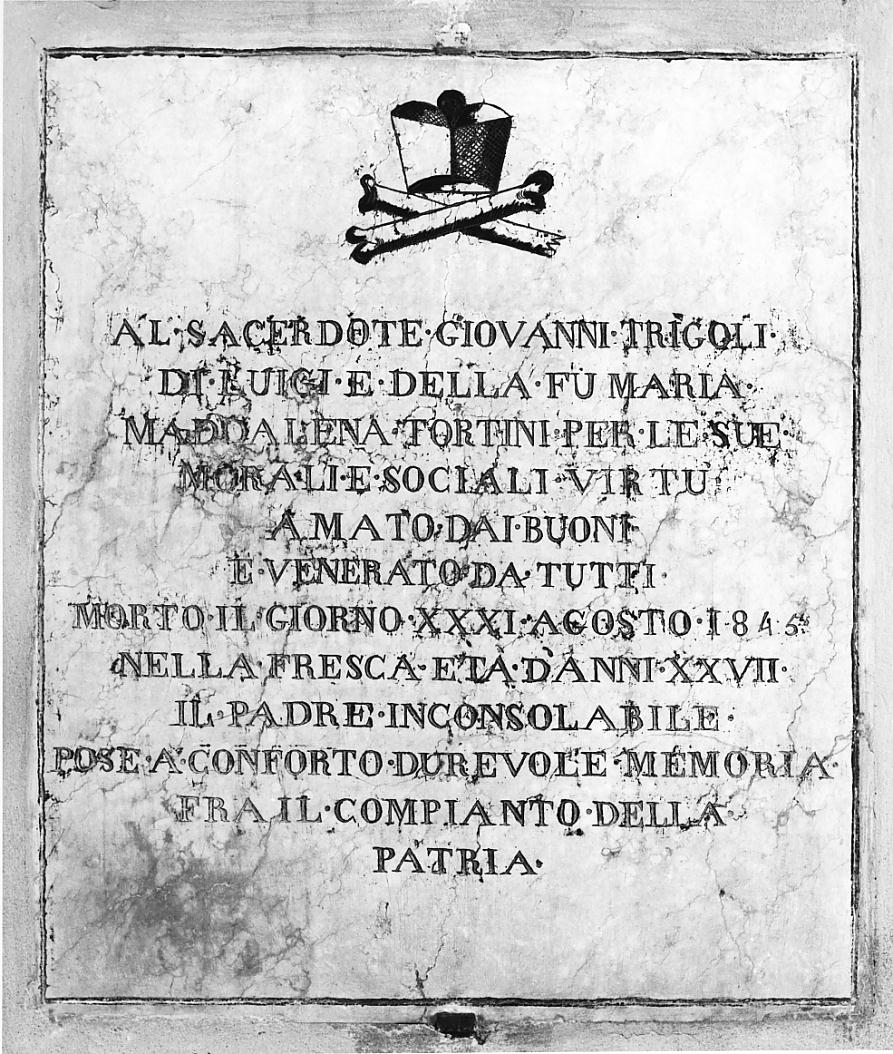 AL·SACERDOTE·GIOVANNI·TRIGOLI·
DI·LUIGI·E·DELLA·FU MARIA·
MADDALENA·TORTINI·PER·LE·SUE·
MORALI·E·SOCIALI·VIRTU
AMATO·DAI·BUONI·
E·VENERATO·DA·TUTTI·
MORTO·IL·GIORNO·XXXI·AGOSTO·1845·
NELLA·FRESCA·ETÀ·D'ANNI·XXVII·
IL·PADRE·INCONSOLABILE·
POSE·A·CONFORTO·DUREVOLE·MEMORIA·
FRA IL·COMPIANTO·DELLA
PATRIA·